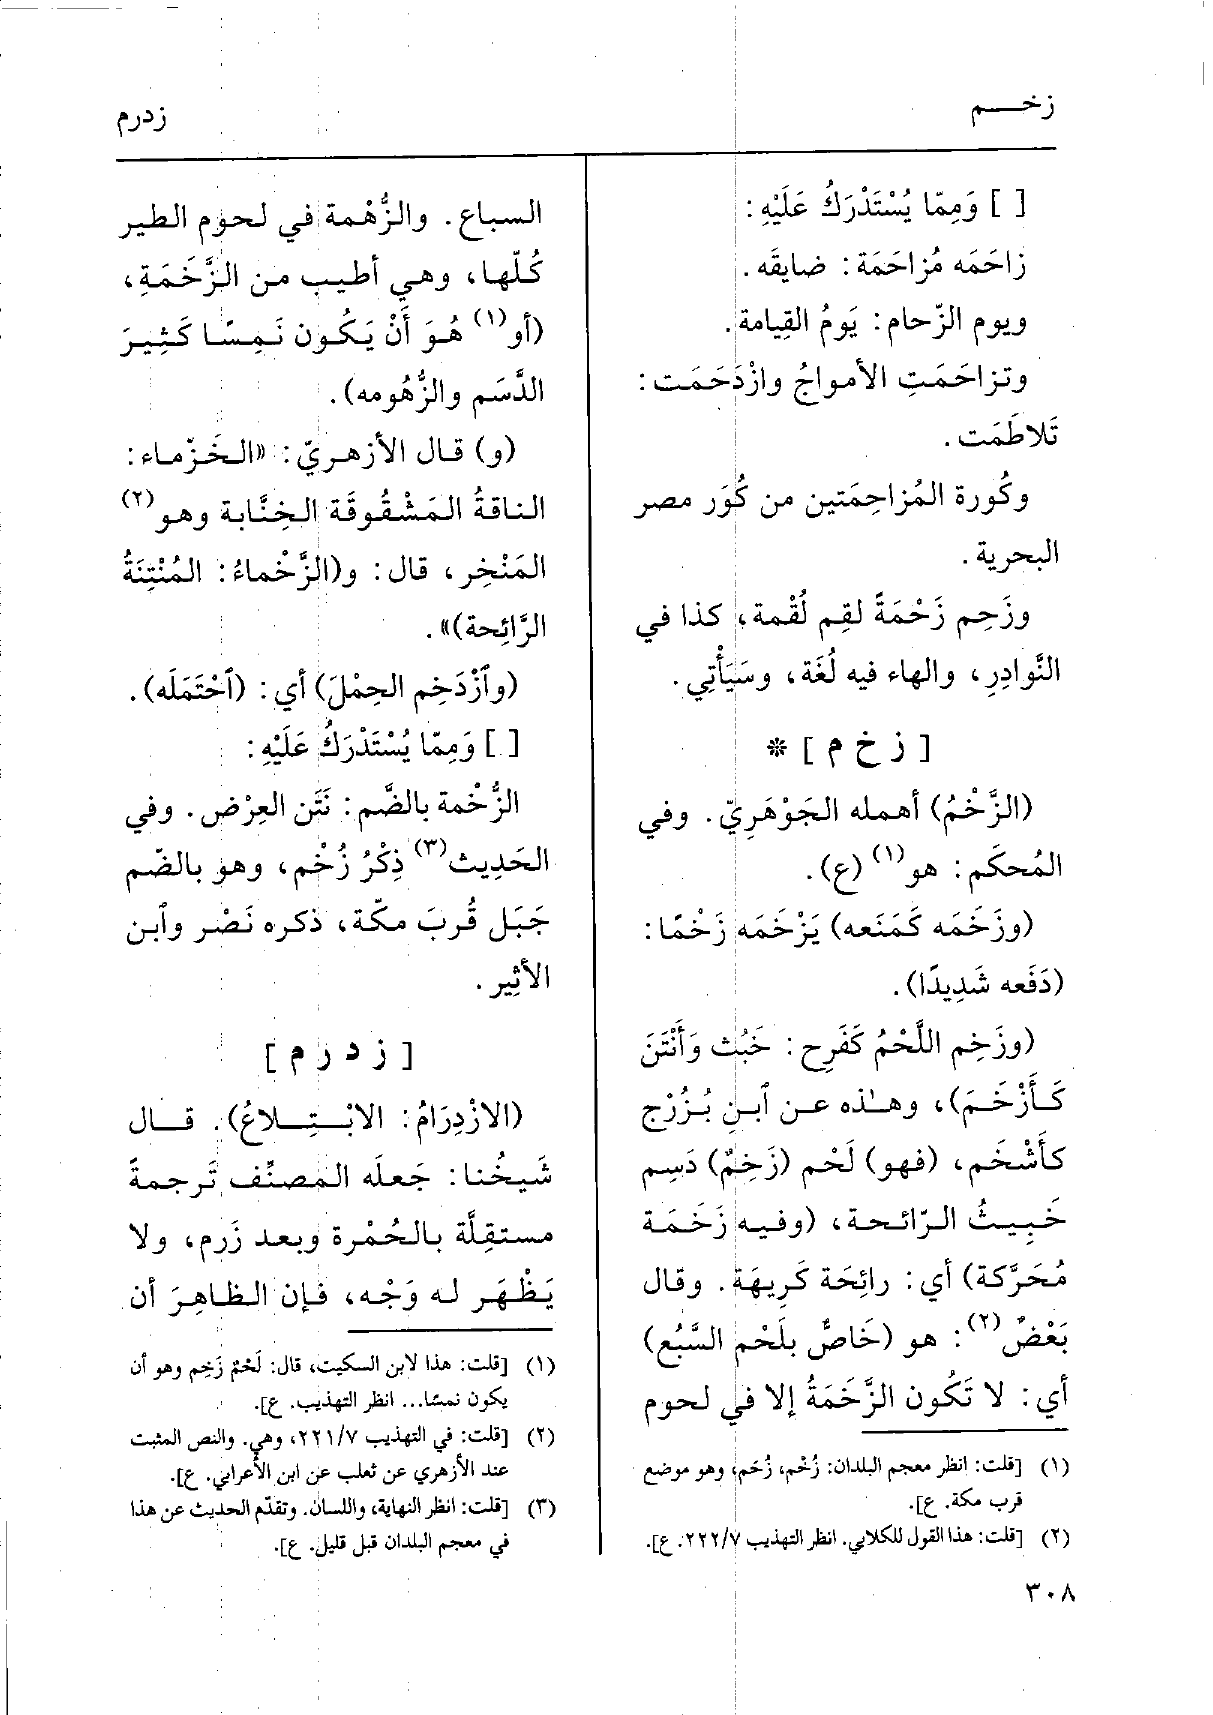 زخـــم
زدرم
[ ] وَمِمّا يُسْتَدْرَكُ عَلَيْهِ :
زاحَمَه مُزاحَمَة : ضايقَه .
ويوم الزّحام : يَومُ القِيامة .
وتزاحَمَتِ الأمواجُ وازْدَحَمَت :
تَلاطَمَت .
وكُورة المُزاحِمَتين من كُوَر مصر
البحرية .
وزَحِم زَحْمَةً لقِم لُقْمة، كذا في
النَّوادِرِ، والهاء فيه لُغَة، وسَيَأْتِي .
[ ز خ م ] *
(الزَّخْمُ) أهمله الجَوْهَرِيّ. وفي
المُحكَم : هو(١) (ع).
(وزَخَمَه كَمَنَعه) يَزْخَمَه زَخْمًا :
(دَفَعه شَدِيدًا) .
(وزَخِم اللَّحْمُ كَفَرِح : خَبُث وَأَنْتَنَ
كَـأَزْخَـمَ)، وهـٰذه عـن ٱبـنِ بُـزُرْج
كأَشْخَم، (فهو) لَحْم (زَخِمٌ) دَسِم
خَبِيـثُ الـرّائـحـة، (وفـيـه زَخَمَـة
مُحَرَّكة) أي : رائِحَة كَرِيهَة. وقال
بَعْضٌ(٢) : هو (خَاصٌّ بلَحْم السَّبُع)
أي : لا تَكُون الزَّخَمَةُ إلا في لحوم
(١) [قلت: انظر معجم البلدان: زُخْم، زُخَم، وهو موضع
قرب مكة. ع].
(٢) [قلت: هذا القول للكلابي. انظر التهذيب ٢٢٢/٧. ع].
السباع. والزُّهْمة في لحوم الطير
كُلّها، وهي أطيب من الزَّخَمَةِ،
(أو(١) هُوَ أَنْ يَكُون نَمِسًا كَثِيرَ
الدَّسَم والزُّهُومه) .
(و) قال الأزهريّ : «الخَرْماء :
الناقةُ المَشْقُوقَة الخِنَّابة وهو(٢)
المَنْخِر، قال : و(الزَّخْماءُ : المُنْتِنَةُ
الرَّائِحة)» .
(وٱزْدَخِم الحِمْلَ) أي : (ٱحْتَمَلَه) .
[ ] وَمِمّا يُسْتَدْرَكُ عَلَيْهِ :
الزُّخْمة بالضَّم : نَتَن العِرْض. وفي
الحَدِيث(٣) ذِكْرُ زُخْم، وهو بالضّم
جَبَل قُربَ مكّة، ذكره نَصْر وٱبن
الأثِير .
[ ز د ر م ]
(الازْدِرَامُ : الابْـتِـلاعُ). قـال
شَيخُنا : جَعلَه المصنِّف تَرجمةً
مستقِلَّة بالحُمْرة وبعد زَرِم، ولا
يَظْهَر له وَجْه، فإن الظاهِرَ أن
(١) [قلت: هذا لابن السكيت، قال: لَحْمٌ زَخِم وهو أن
يكون نمسًا... انظر التهذيب. ع].
(٢) [قلت: في التهذيب ٢٢١/٧، وهي. والنص المثبت
عند الأزهري عن ثعلب عن ابن الأعرابي. ع].
(٣) [قلت: انظر النهاية، واللسان. وتقدّم الحديث عن هذا
في معجم البلدان قبل قليل. ع].
٣٠٨